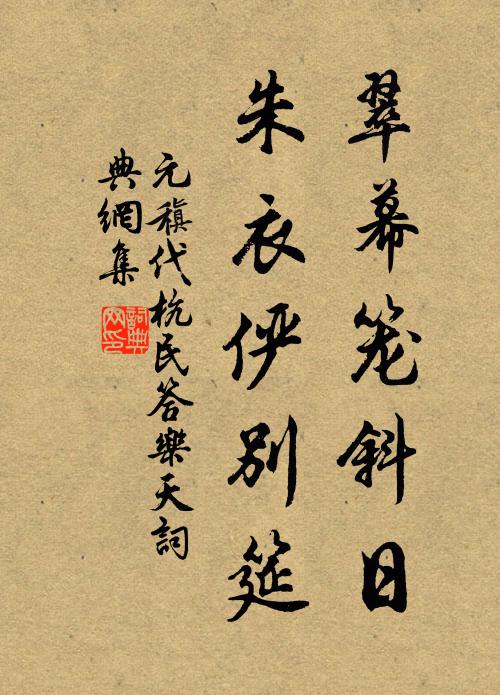 翠幕笼斜日
朱衣俨别筵
元稹代杭民答樂天詞
典網集
詞典网印